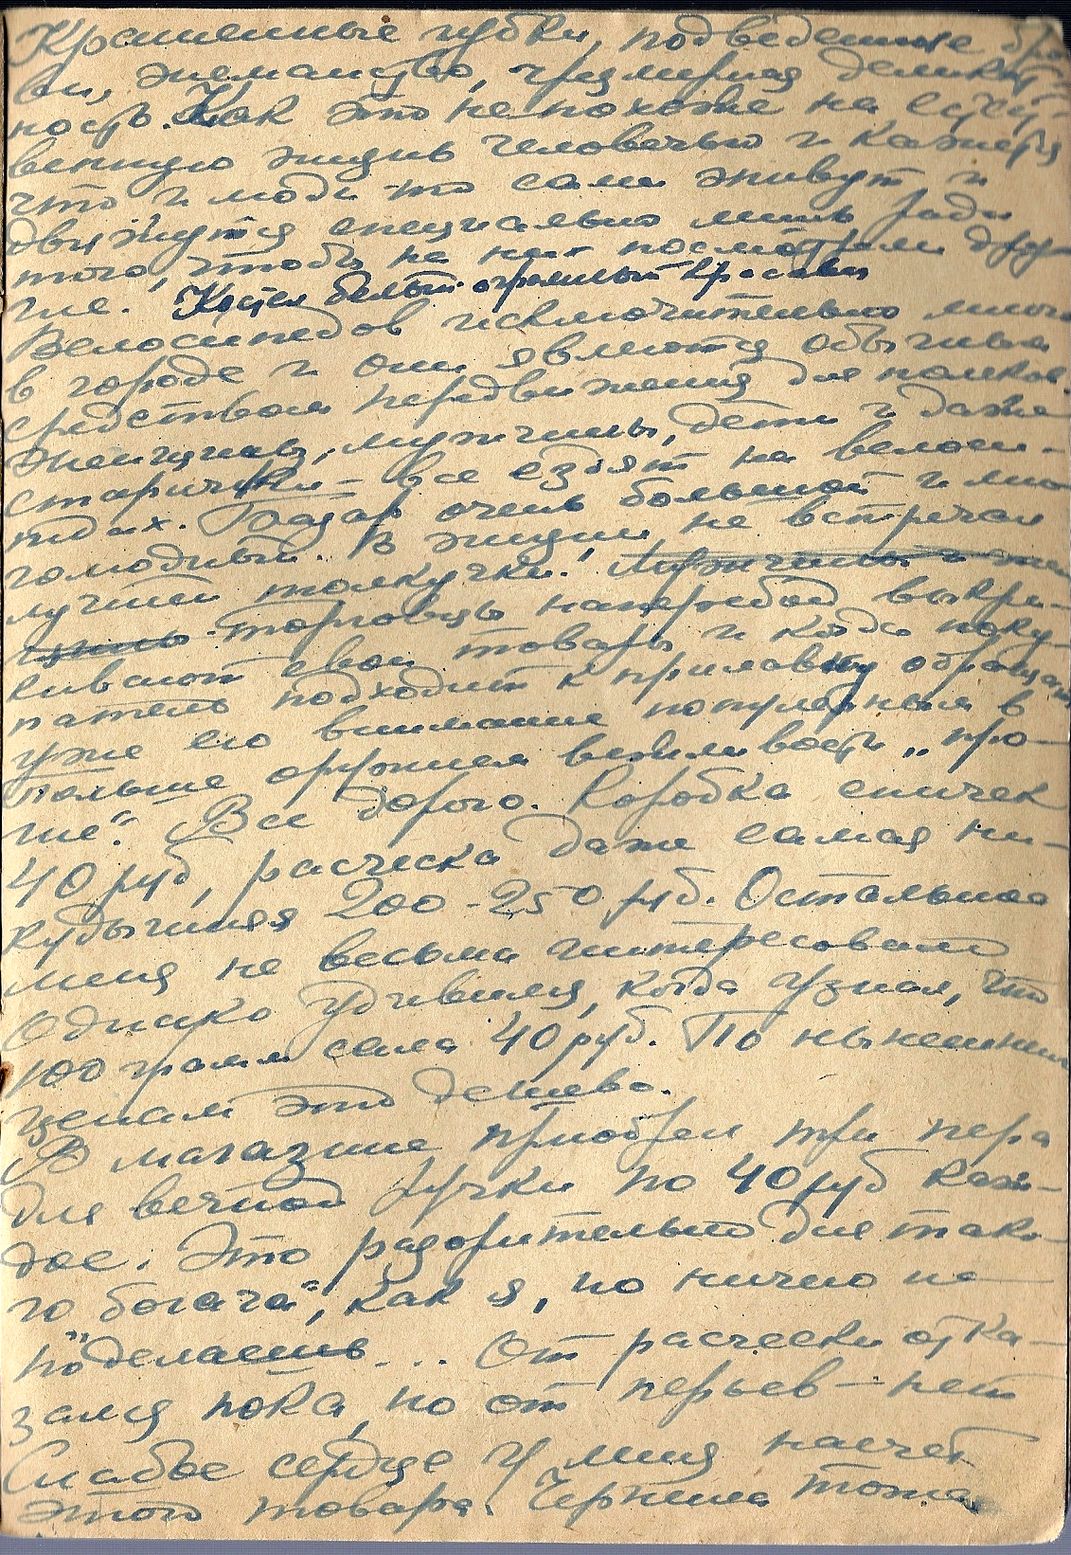 Крашенные губки, подведенные бро-
ви, жеманство, чрезмерная деликат-
ность. Как это не похоже на сущест-
венную жизнь человечью и кажется
что и люди-то сами живут и
движутся специально лишь ради
того, чтобы на них посмотрели дру-
гие. Костел белый огромный красавец
Велосипедов исключительно много
в городе и они являются обычным
средством передвижения для поляков.
Женщины, мужчины, дети и даже
старички – все ездят на велоси-
педах. Базар очень большой и мно
голюдный. В жизни не встречал
лучшей толкучки! Мужчины и жен
щины торговцы наперебой выкри-
кивают свои товары и когда поку-
патель подходит к прилавку обращают
уже его внимание популярным в
польше оружием вежливости „про-
ше“. Все дорого. Коробка спичек
40 руб, расческа даже самая ни-
кудышняя 200-250 руб. Остальное
меня не весьма интересовало
Однако удивился, когда узнал, что
100 грамм сала 40 руб. По нынешним
ценам это дешево.
В магазине приобрел три пера
для вечной ручки по 40 руб каж-
дое. Это разорительно для тако-
го „богача“, как я, но ничего не
поделаешь... От расчески отка-
зался пока, но от перьев – нет
Слабое сердце у меня насчет
этого товара. Чернила тоже